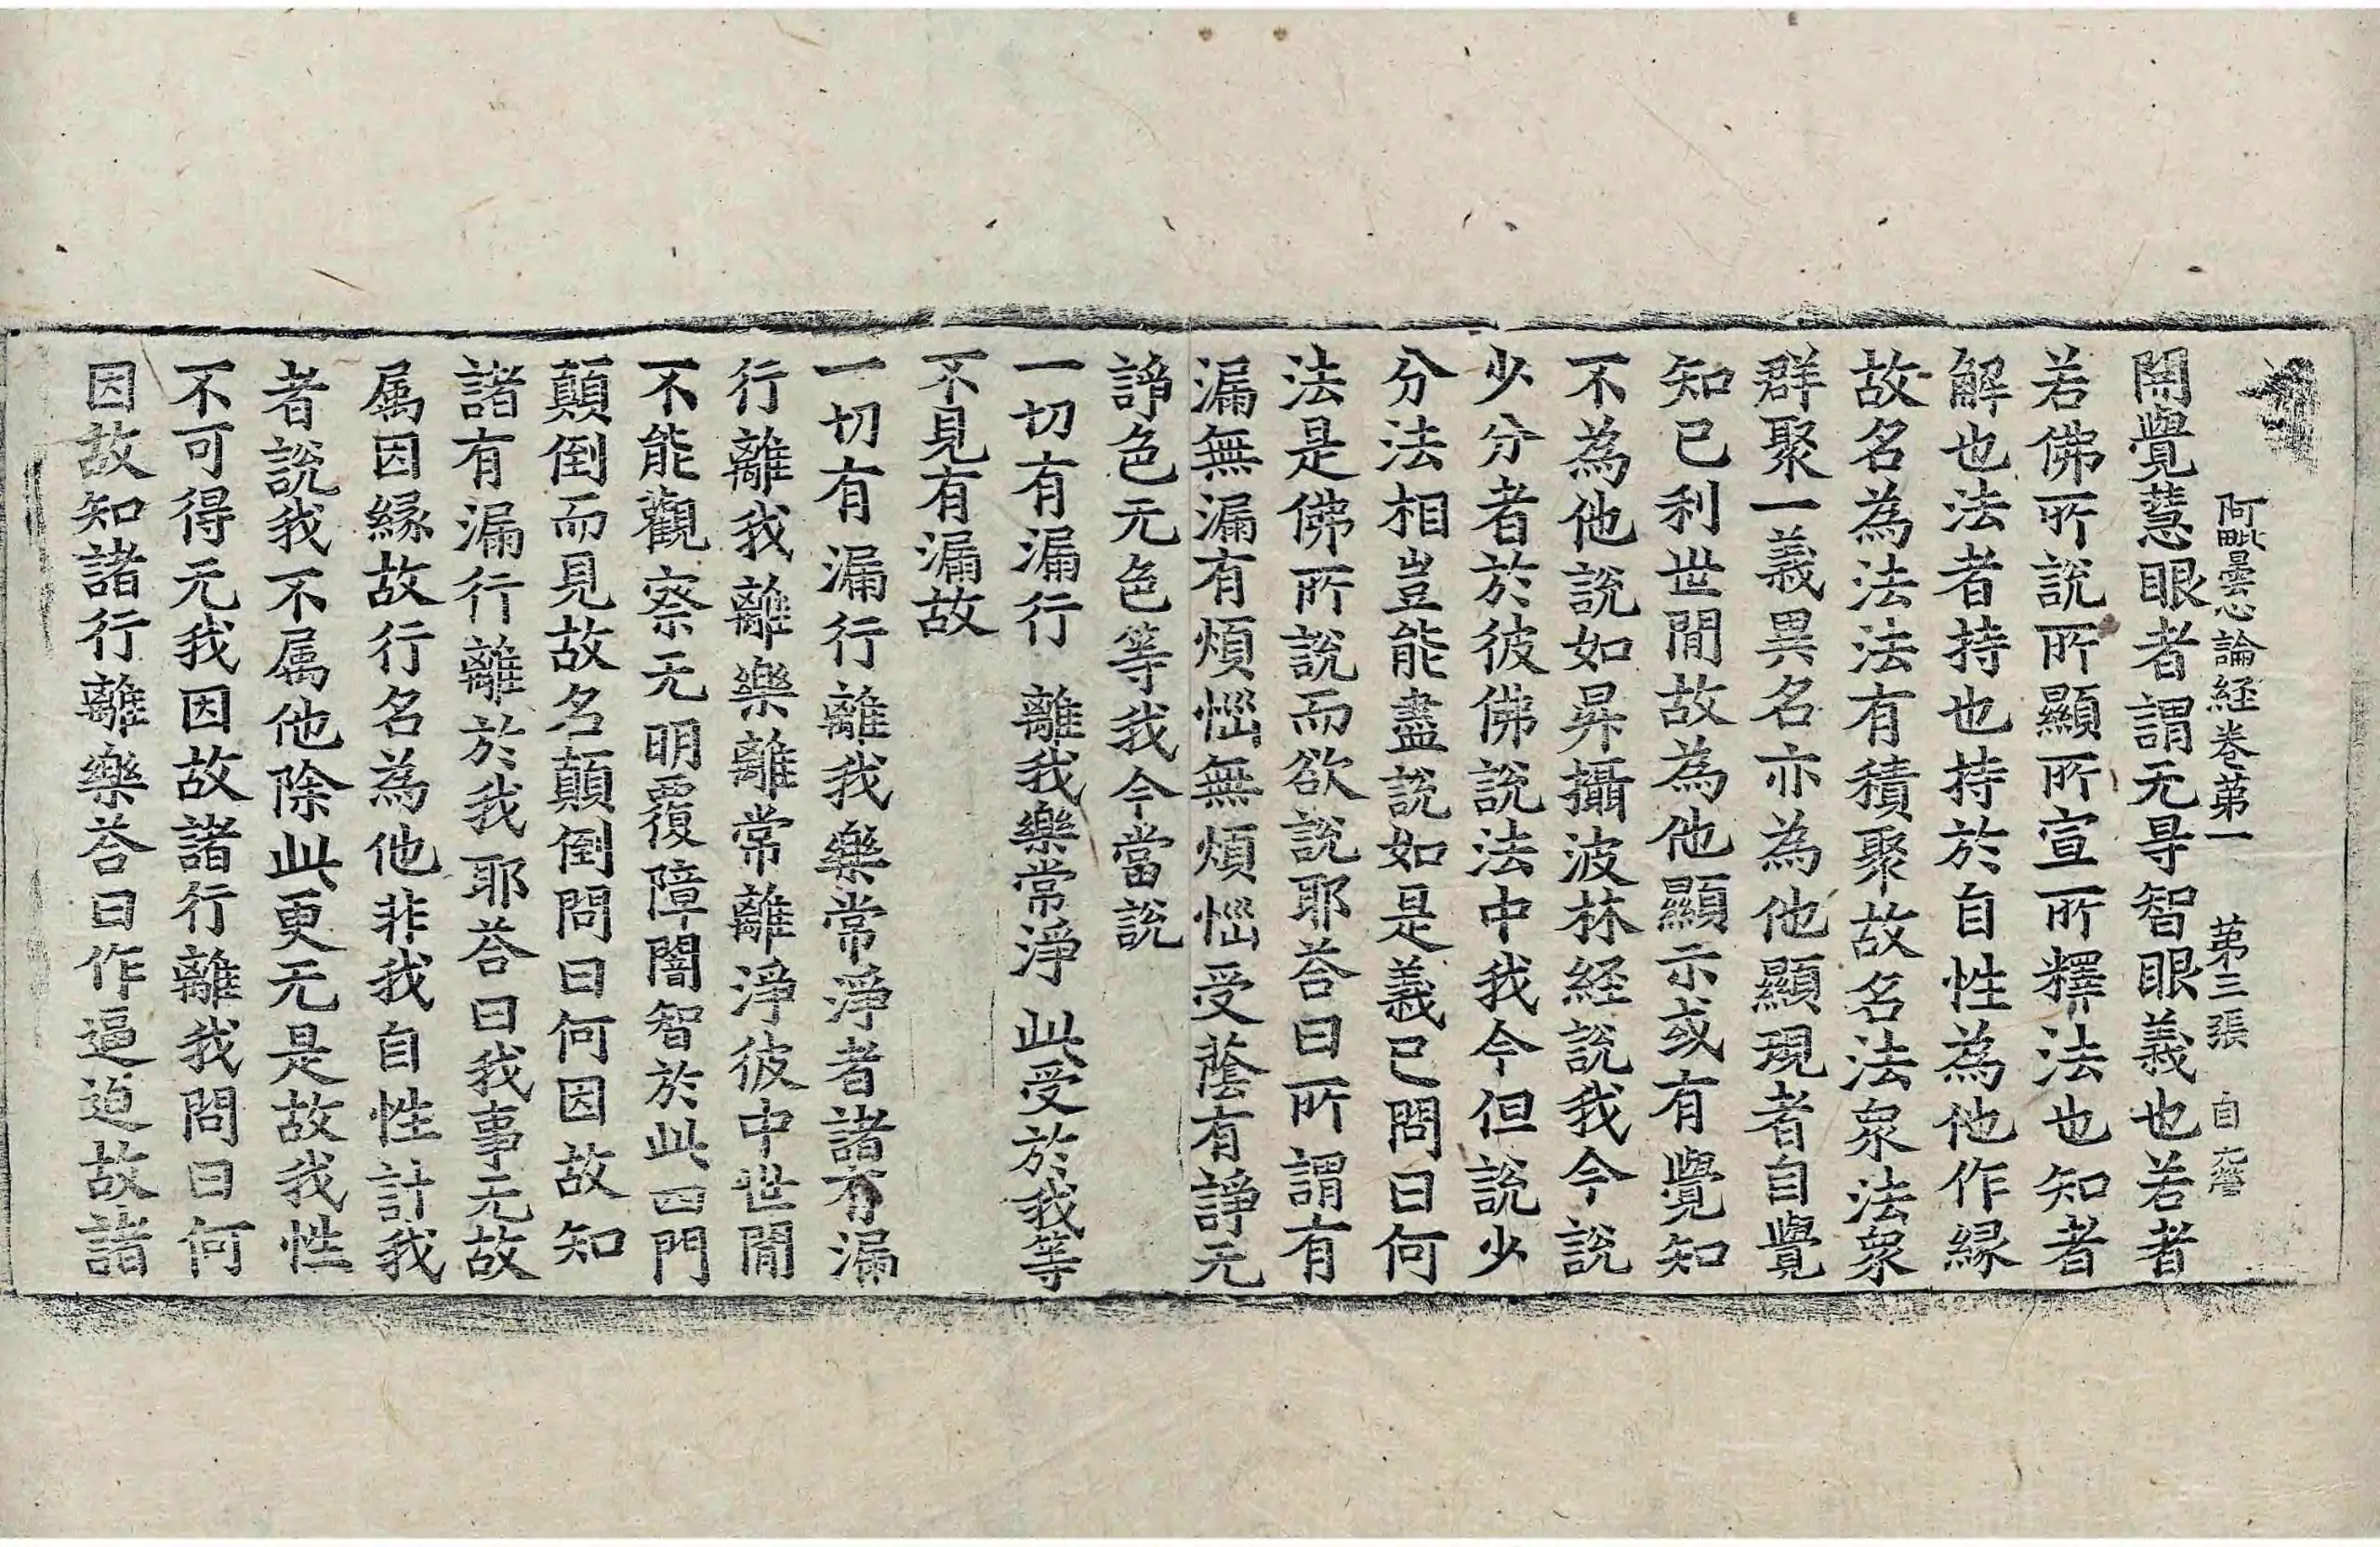 阿毗曇心論経巻苐一 苐三張 自
開覺慧眼者謂无㝵智眼義也若者
若佛所說所顯所宣所釋法也知者
解也法者持也持於自性為他作縁
故名為法法有積聚故名法衆法衆
群聚一義異名亦為他顯現者自覺
知已利世間故為他顯示或有覺知
不為他說如昇攝波林経說我今說
少分者於彼佛說法中我今但說少
分法相豈能盡說如是義已問曰何
法是佛所說而欲說耶荅曰所謂有
漏無漏有煩惱無煩惱受蔭有諍无
諍色无色等我今當說
一切有漏行 離我樂常淨 此受於我等
不見有漏故
一切有漏行離我樂常淨者諸有漏
行離我離樂離常離淨彼中世間
不能觀察无明覆障闇智於此四門
顛倒而見故名顛倒問曰何因故知
諸有漏行離於我耶荅曰我事无故
属因縁故行名為他非我自性計我
者說我不属他除此更无是故我性
不可得无我因故諸行離我問曰何
因故知諸行離樂荅曰作逼迫故諸